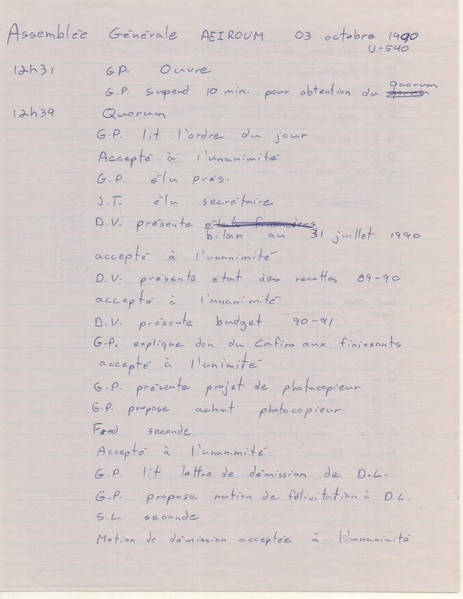 Assemblée Générale AEIROUM 03 octobre 1990
U-540
12h31 G.P. Ouvre
G.P. suspend 10 min. pour obtention du quorum
12h39 Quorum
G.P. lit l'ordre du jour
Accepté à l'unanimité
G.P. élu prés.
J.T. élu secrétaire
D.V. présente états financiers
bilan au 31 juillet 1990
accepté à l'unanimité
D.V. présente état des recettes 89-90
accepté à l'unanimité
D.V. présente budget 90-91
G.P. explique don du Cafiro aux finissants
accepté à l'unimité
G.P. présente projet de photocopieur
G.P. propose achat photocopieur
Fred seconde
Accepté à l'unanimité
G.P. lit lettre de démission de D.L.
G.P. propose motion de félicitation à D.L.
S.L. seconde
Motion de démission acceptée à l'unanimité